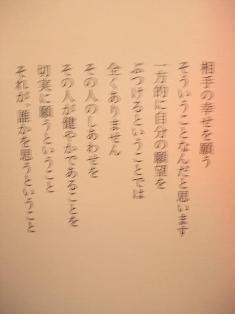 相手の幸せを願う
そういうことなんだと思います
一方的に自分の願望を
ぶつけるということでは
全くありません
その人のしあわせを
その人が健やかであることを
切実に願うということ
それが、誰かを思うということ